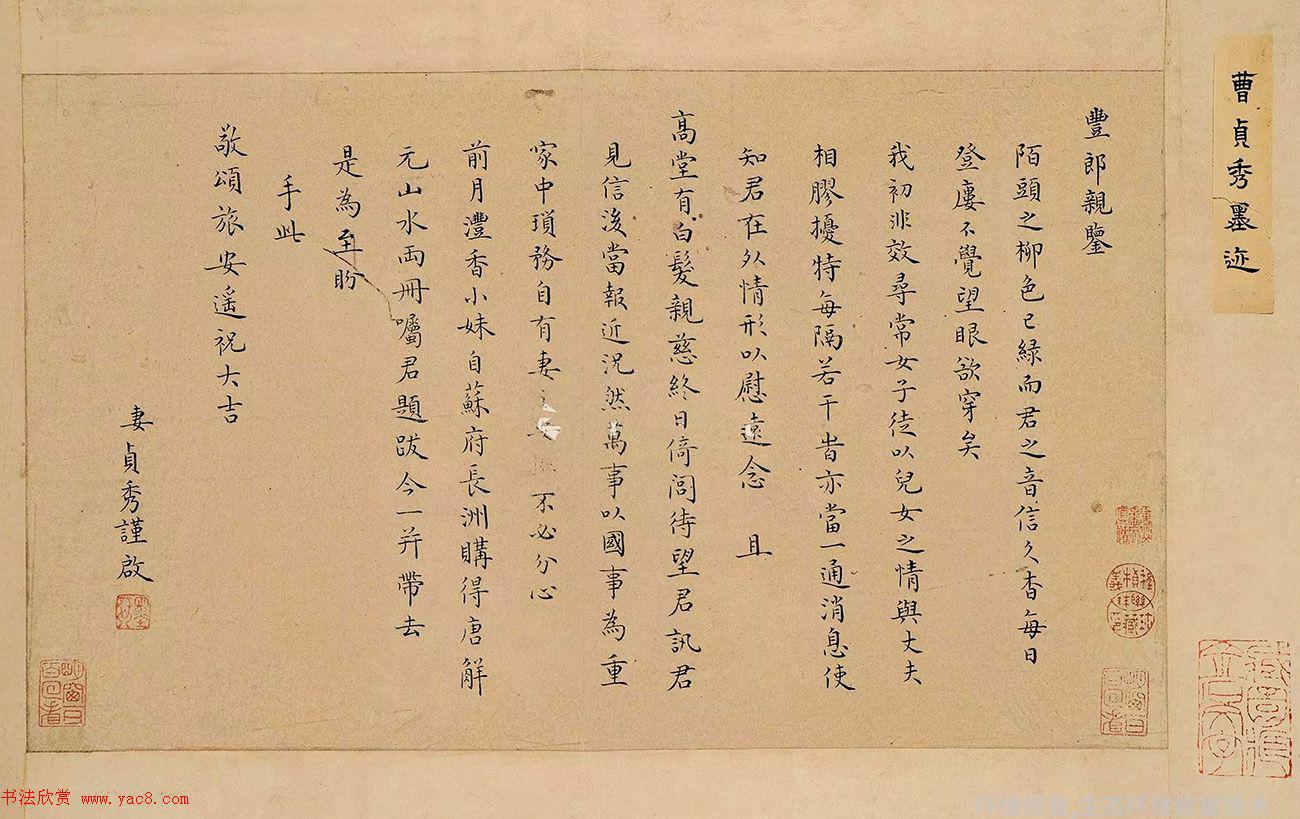 曹貞秀墨迹
豐郎親鑒
陌頭之柳色已綠而君之音信久杳每日
登廔不覺望眼欲穿矣
我初非效尋常女子徒以兒女之情與丈夫
相膠擾特每隔若干昔亦當一通消息使
知君在外情形以慰遠念 且
高堂有白髮親慈終日倚閭待望君訊君
見信後當報近況然萬事以國事為重
家中瑣務自有妻 不必分心
前月灃香小妹自蘇府長洲購得唐解
元山水兩冊囑君題跋今一并帶去
是為至盼
手此
敬頌旅安遥祝大吉
妻貞秀謹啟
书法欣赏 www.yac8.com